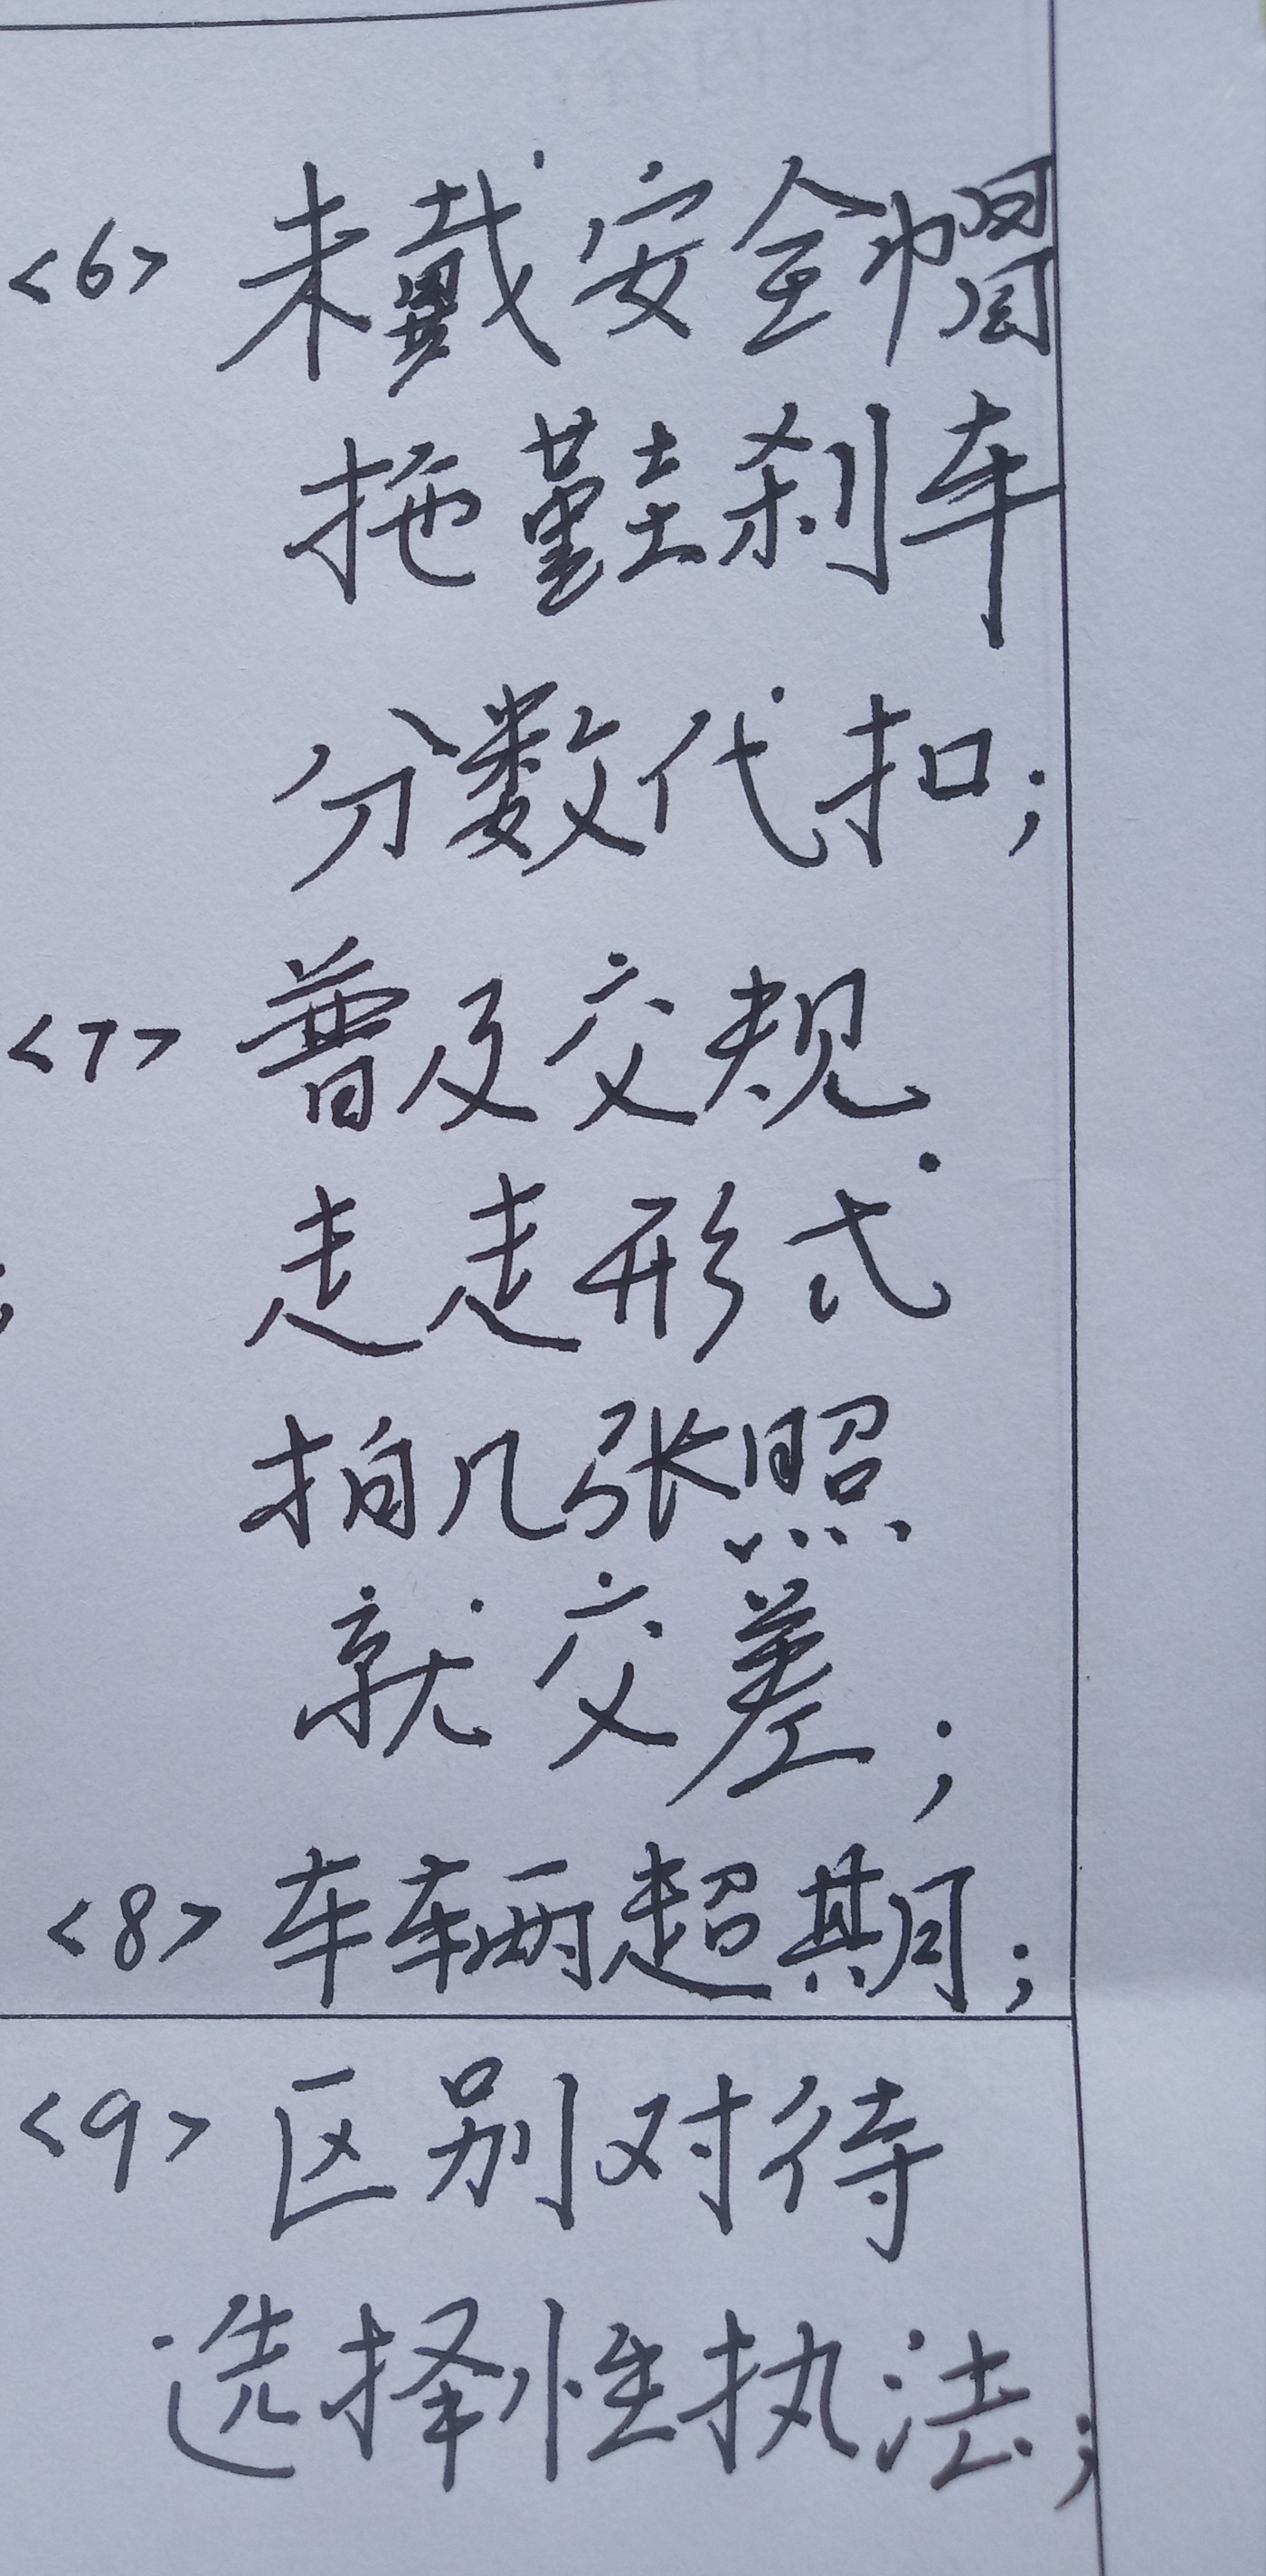 <6> 未戴安全帽
拖鞋刹车
分数代扣;
<7> 普及交规
走走形式
拍几张照
就交差;
<8> 车辆超期;
<9> 区别对待
选择性执法;